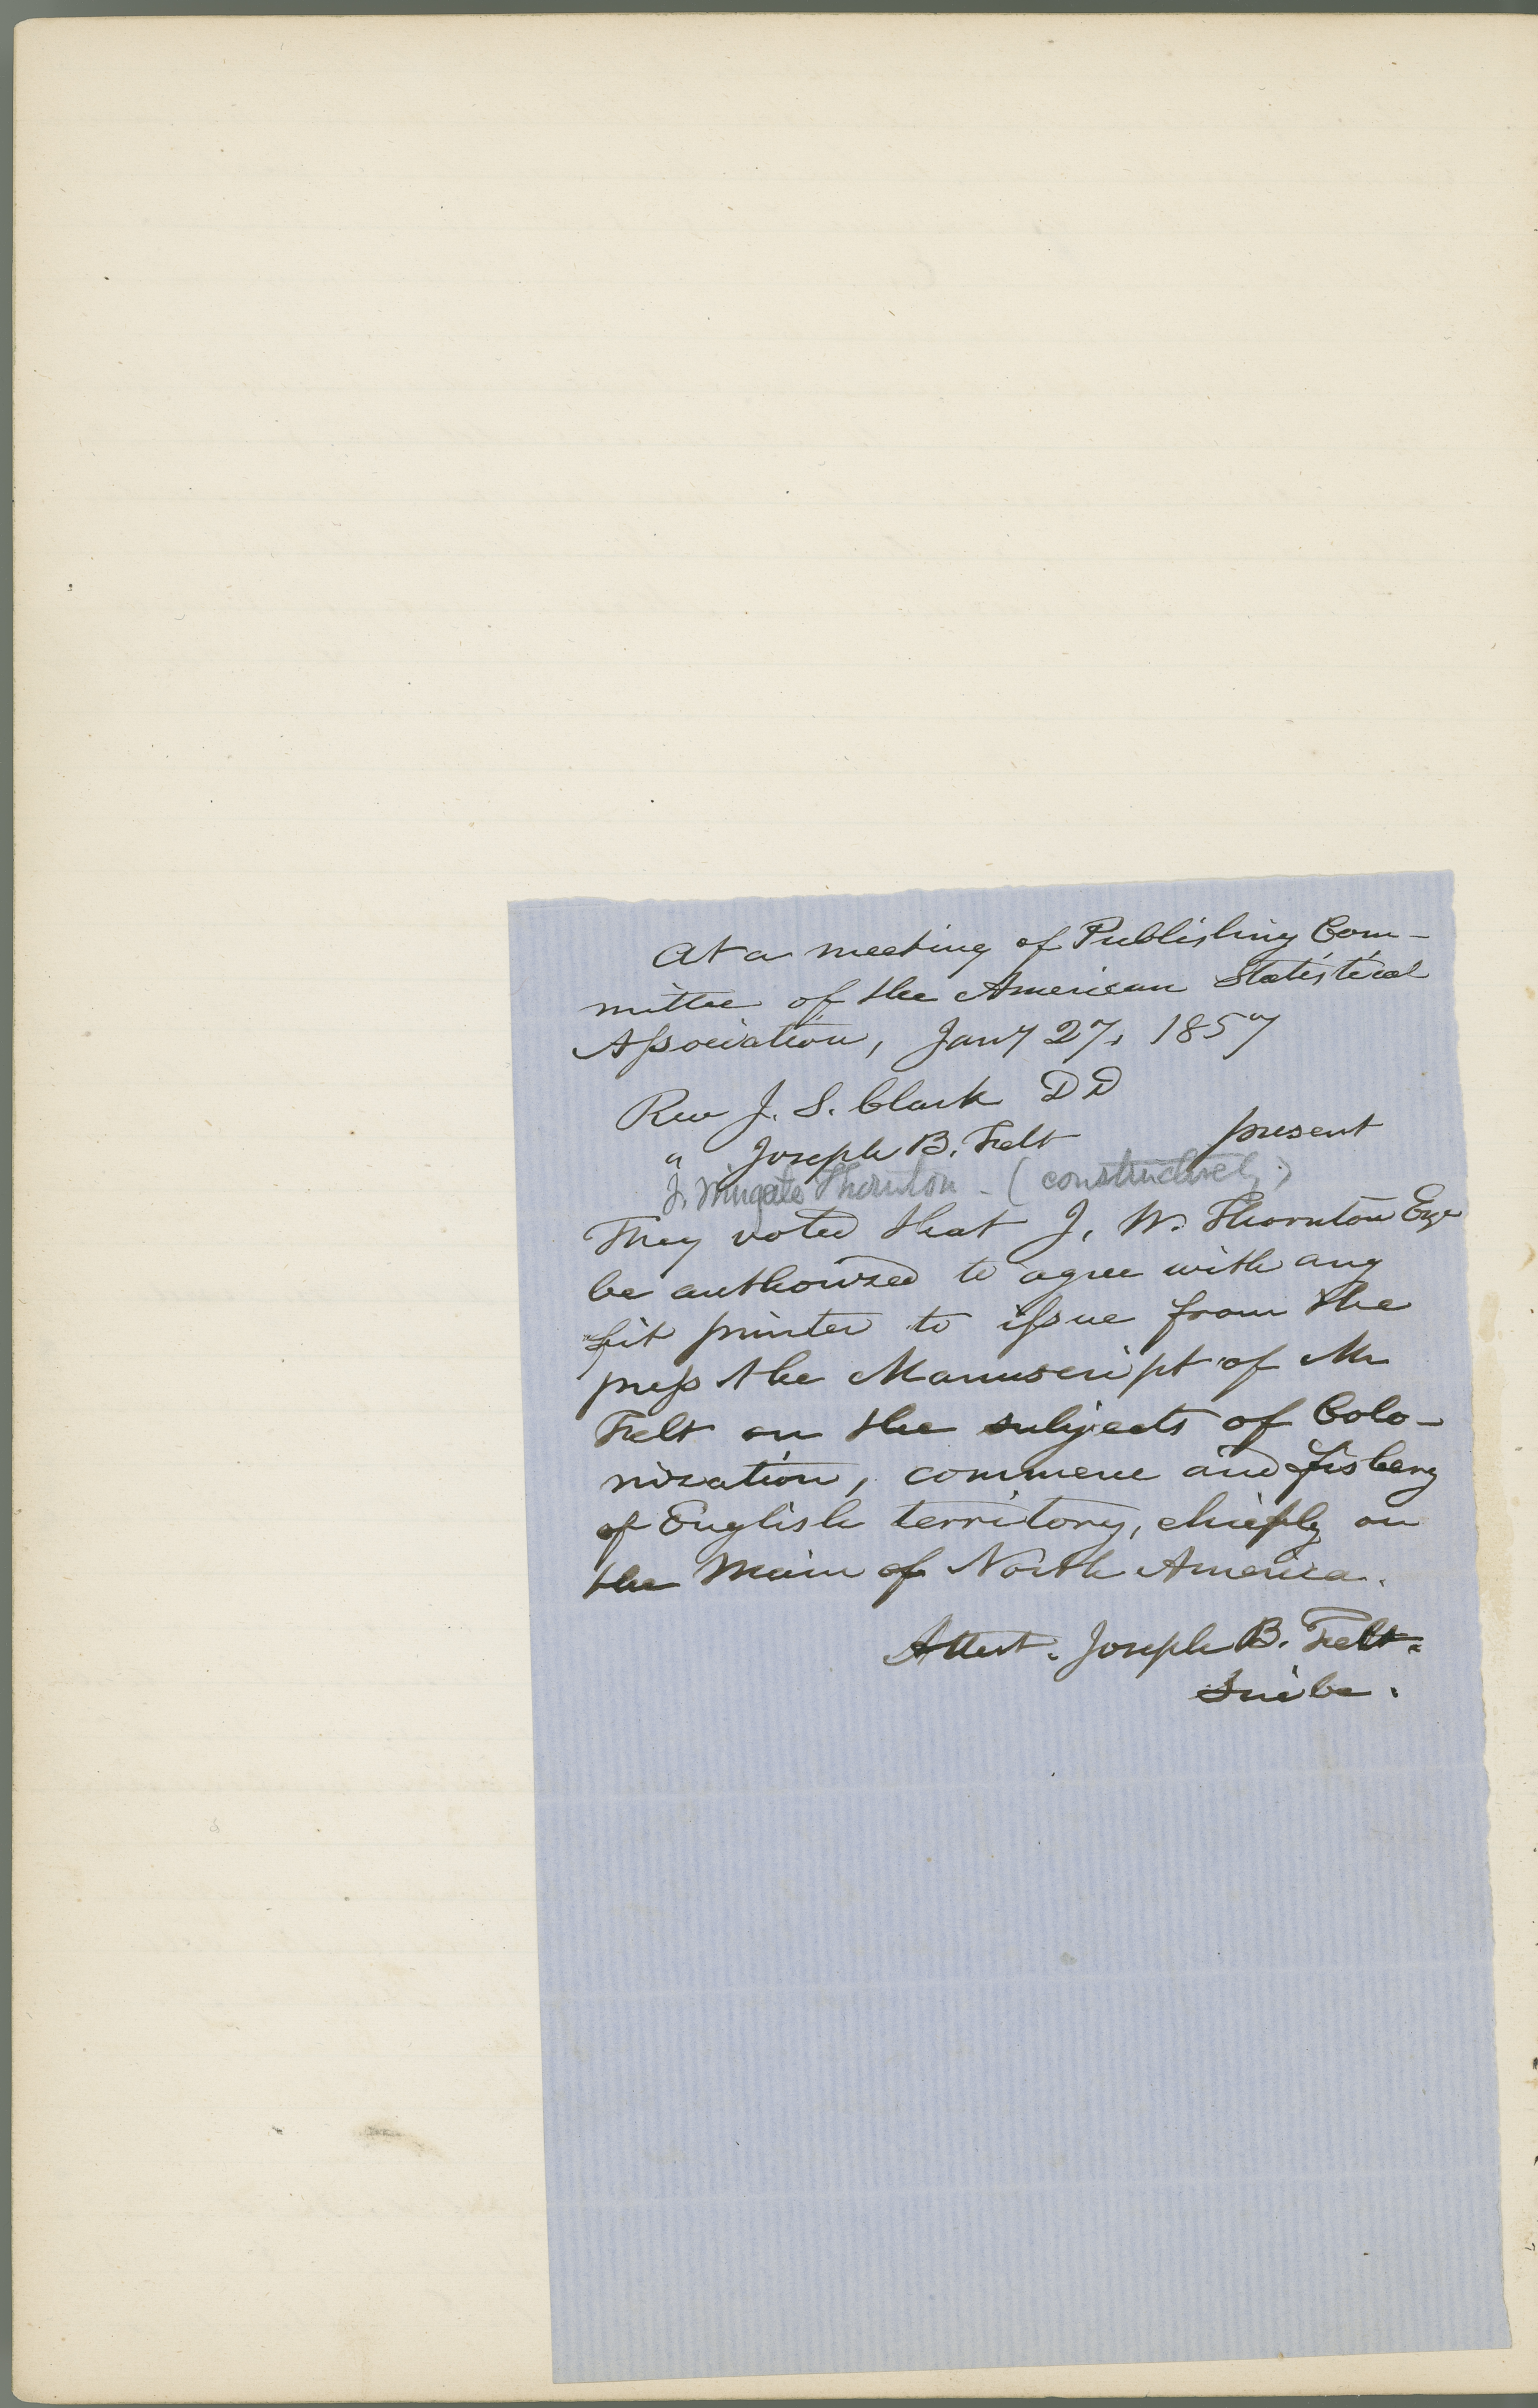 At a meeting of Publishing Com-
mittee of the American Statistical
Association, Jany 27, 1857
Rev J. S. Clark DD
" Joseph B. Felt present
J. Wingate Thornton - (constructively)
They voted that J. W. Thornton Esqr
be authorized to agree with any
fit printer to issue from the
press the Manuscript of Mr
Felt on the subjects of Colo-
nization, commerce and fishery
of English territory, chiefly on
the Main of North America.
Attest. Joseph B. Felt.
Scribe.